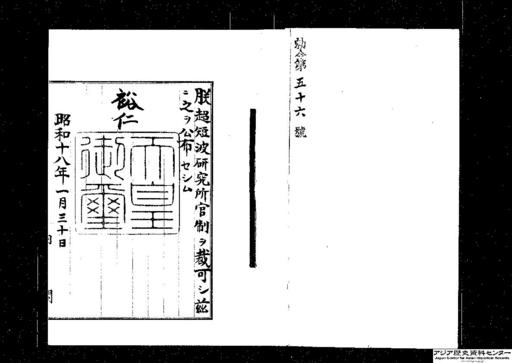 勅令第五十六號
朕超短波研究所官制ヲ裁可シ茲
ニ之ヲ公布セシム
裕仁
天皇御璽
昭和十八年一月三十日
アジア歴史資料センター
Japan Center for Asian Historical Records